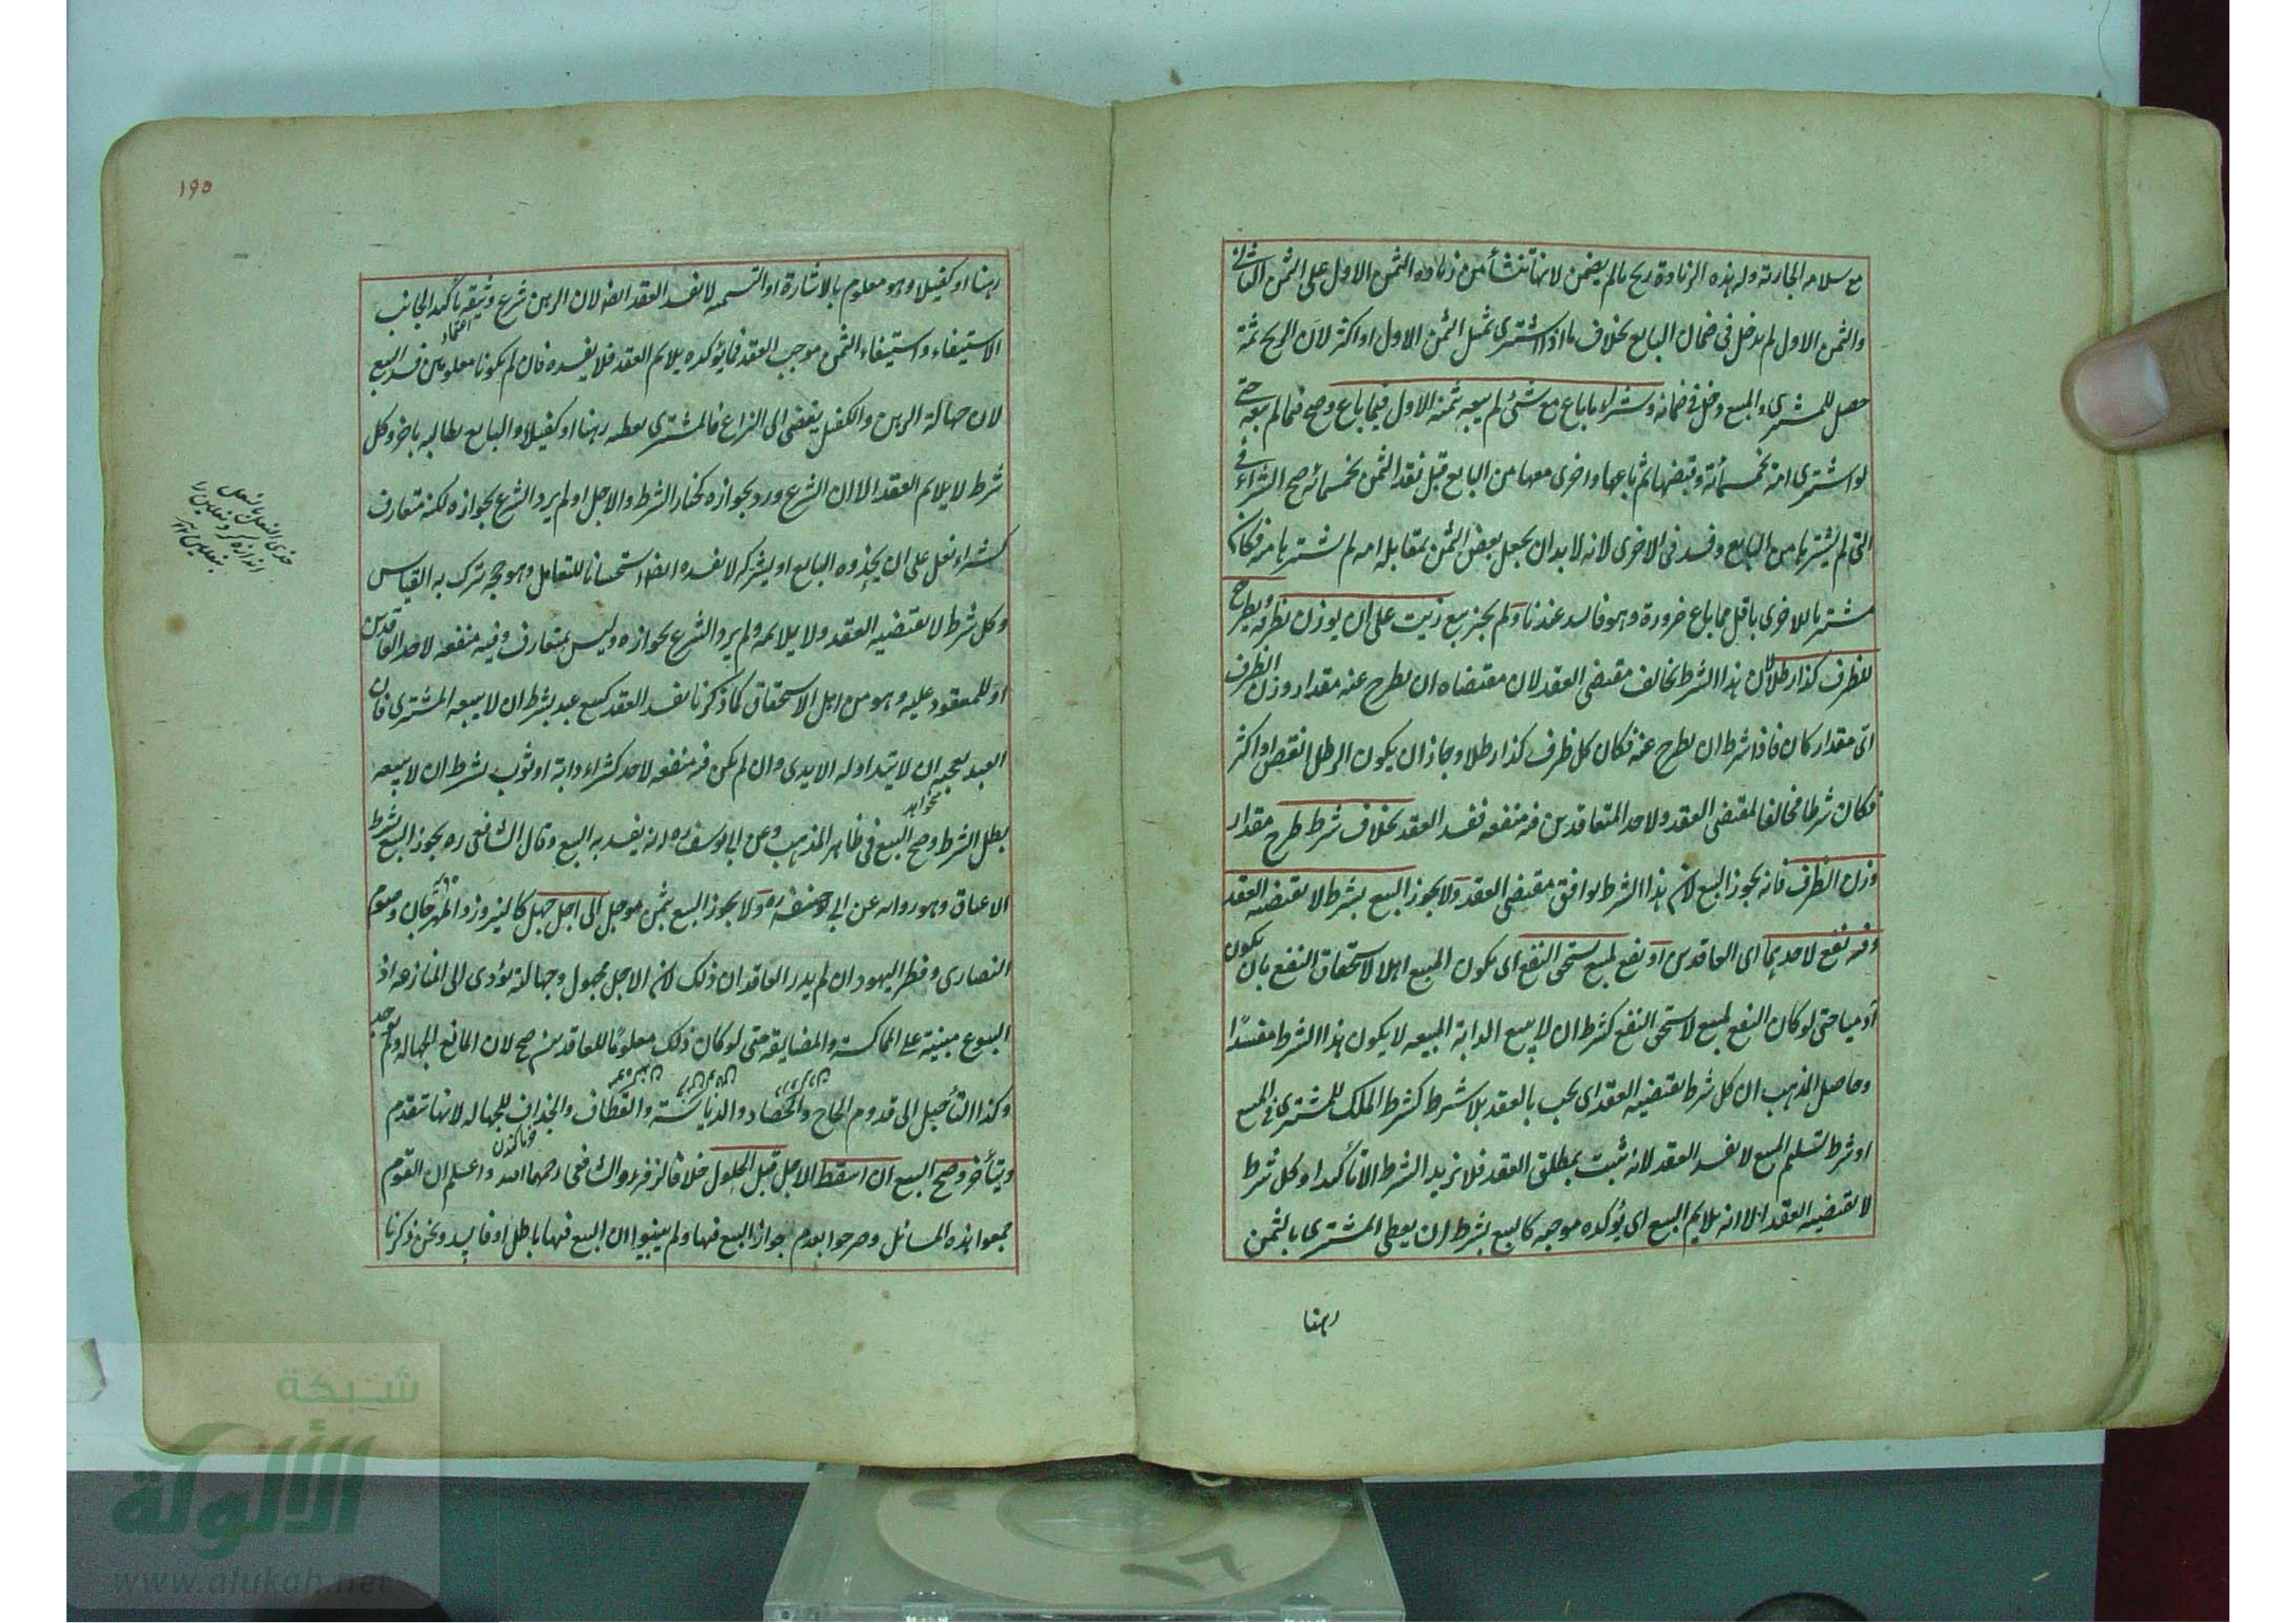 مع سلامة الجارية وله هذه الزيادة ربح ما لم يضمن لانها تنشأ من زيادة الثمن الاول على الثمن الثانى
والثمن الاول لم يدخل فى ضمان البايع بخلاف ما اذا اشترى بمثل الثمن الاول او اكثر لان الربح ثمة
حصل للمشترى والمبيع دخل فى ضمانه وشراء ما باع مع شئ لم يبعه بثمنه الاول فيما باع وصح فيما لم يبعه حتى
لو اشترى امة بخمسمائة وقبضها ثم باعها واخرى معها من البايع قبل نقد الثمن بخمسمائة صح الشراء فى
التى لم يشترها من البايع وفسد فى الاخرى لانه لا بد ان يجعل بعض الثمن بمقابلة امة لم يشترها منه فكان
مشتريا للاخرى باقل مما باع ضرورة وهو فاسد عندنا ولم يجز بيع زيت على ان يوزن بظرفه ويطرح
للظرف كذا رطلا لان هذا الشرط يخالف مقتضى العقد لان مقتضاه ان يطرح عنه مقدار وزن الظرف
اى مقدار كان فاذا شرط ان يطرح عنه فكان كل ظرف كذا رطلا وجاز ان يكون الرطل انقص او اكثر
فكان شرطا مخالفا لمقتضى العقد ولاحد المتعاقدين فيه منفعة ففسد العقد بخلاف شرط طرح مقدار
وزن الظرف فانه يجوز البيع لان هذا الشرط يوافق مقتضى العقد ولا يجوز البيع بشرط لا يقتضيه العقد
وفيه نفع لاحدهما اى العاقدين او نفع لمبيع يستحق النفع اى يكون المبيع اهلا لاستحقاق النفع بان يكون
آدميا حتى لو كان النفع لمبيع لا يستحق النفع كشرط ان لا يبيع الدابة المبيعة لا يكون هذا الشرط مفسدا
وحاصل المذهب ان كل شرط يقتضيه العقد اى يجب بالعقد بلا شرط كشرط الملك للمشترى فى المبيع
او شرط تسليم المبيع لا يفسد العقد لانه ثبت بمطلق العقد فلا يزيد الشرط الا تأكيدا وكل شرط
لا يقتضيه العقد الا انه يلايم البيع اى يؤكده موجبه كالبيع بشرط ان يعطى المشترى بالثمن
رهنا
١٩٥
رهنا او كفيلا وهو معلوم بالاشارة او التسمية لا يفسد العقد ايضا لان الرهن شرع وثيقة تأكيدا لجانب
اعتماد
الاستيفاء واستيفاء الثمن موجب العقد فما يؤكده يلايم العقد فلا يفسده فان لم يكونا معلومين فسد البيع
لان جهالة الرهن والكفيل يفضى الى النزاع فالمشترى يعطيه رهنا او كفيلا والبايع يطالبه باخر وكل
شرط لا يلايم العقد الا ان الشرع ورد بجوازه كخيار الشرط والاجل او لم يرد الشرع بجوازه ولكنه متعارف
كشراء نعل على ان يحذوه البايع او يشركه لا يفسد ايضا استحسانا للتعامل وهو حجة ترك به القياس
وكل شرط لا يقتضيه العقد ولا يلايمه ولم يرد الشرع بجوازه وليس بمتعارف وفيه منفعة لاحد العاقدين
او للمعقود عليه وهو من اهل الاستحقاق كما ذكرنا يفسد العقد كبيع عبد بشرط ان لا يبيعه المشترى فان
العبد يعجبه ان لا يتداوله الايدى وان لم يكن فيه منفعة لاحد كشراء دابة او ثوب بشرط ان لا يبيعه
بطل الشرط وصح البيع فى ظاهر المذهب وعن ابى يوسف ره انه يفسد به البيع وقال الشافعى ره يجوز البيع بشرط
الاعتاق وهو رواية عن ابى حنيفة ره ولا يجوز البيع بثمن مؤجل الى اجل جهل كالنيروز والمهرجان وصوم
النصارى وفطر اليهود ان لم يدر العاقدان ذلك لان الاجل مجهول وجهالته يؤدى الى المنازعة اذ
البيوع مبنية على المماكسة والمضايقة حتى لو كان ذلك معلوما للعاقدين صح لان المانع الجهالة ولم يوجد
وكذا التأجيل الى قدوم الحاج والحصاد والدياسة والقطاف والجذاذ للجهالة لانها تتقدم
ويتأخر وصح البيع ان اسقط الاجل قبل الحلول خلافا لزفر والشافعى رحمهما الله واعلم ان القوم
جمعوا هذه المسائل وصرحوا بعدم جواز البيع فيها ولم يبينوا ان البيع فيها باطل او فاسد ونحن ذكرنا
شبكة
الألوكة
www.alukah.net